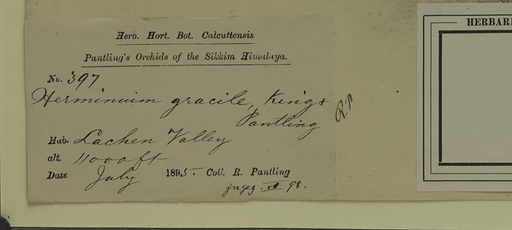 Herb. Hort. Bot. Calcuttensis
Pantling's Orchids of the Sikkim Himalaya.
No. 397
Herminium gracile, King &
Pantling
R.P.
Hab. Lachen Valley
alt. 11000 ft
Date July 1895. Coll. R. Pantling
VII 98.
HERBARI